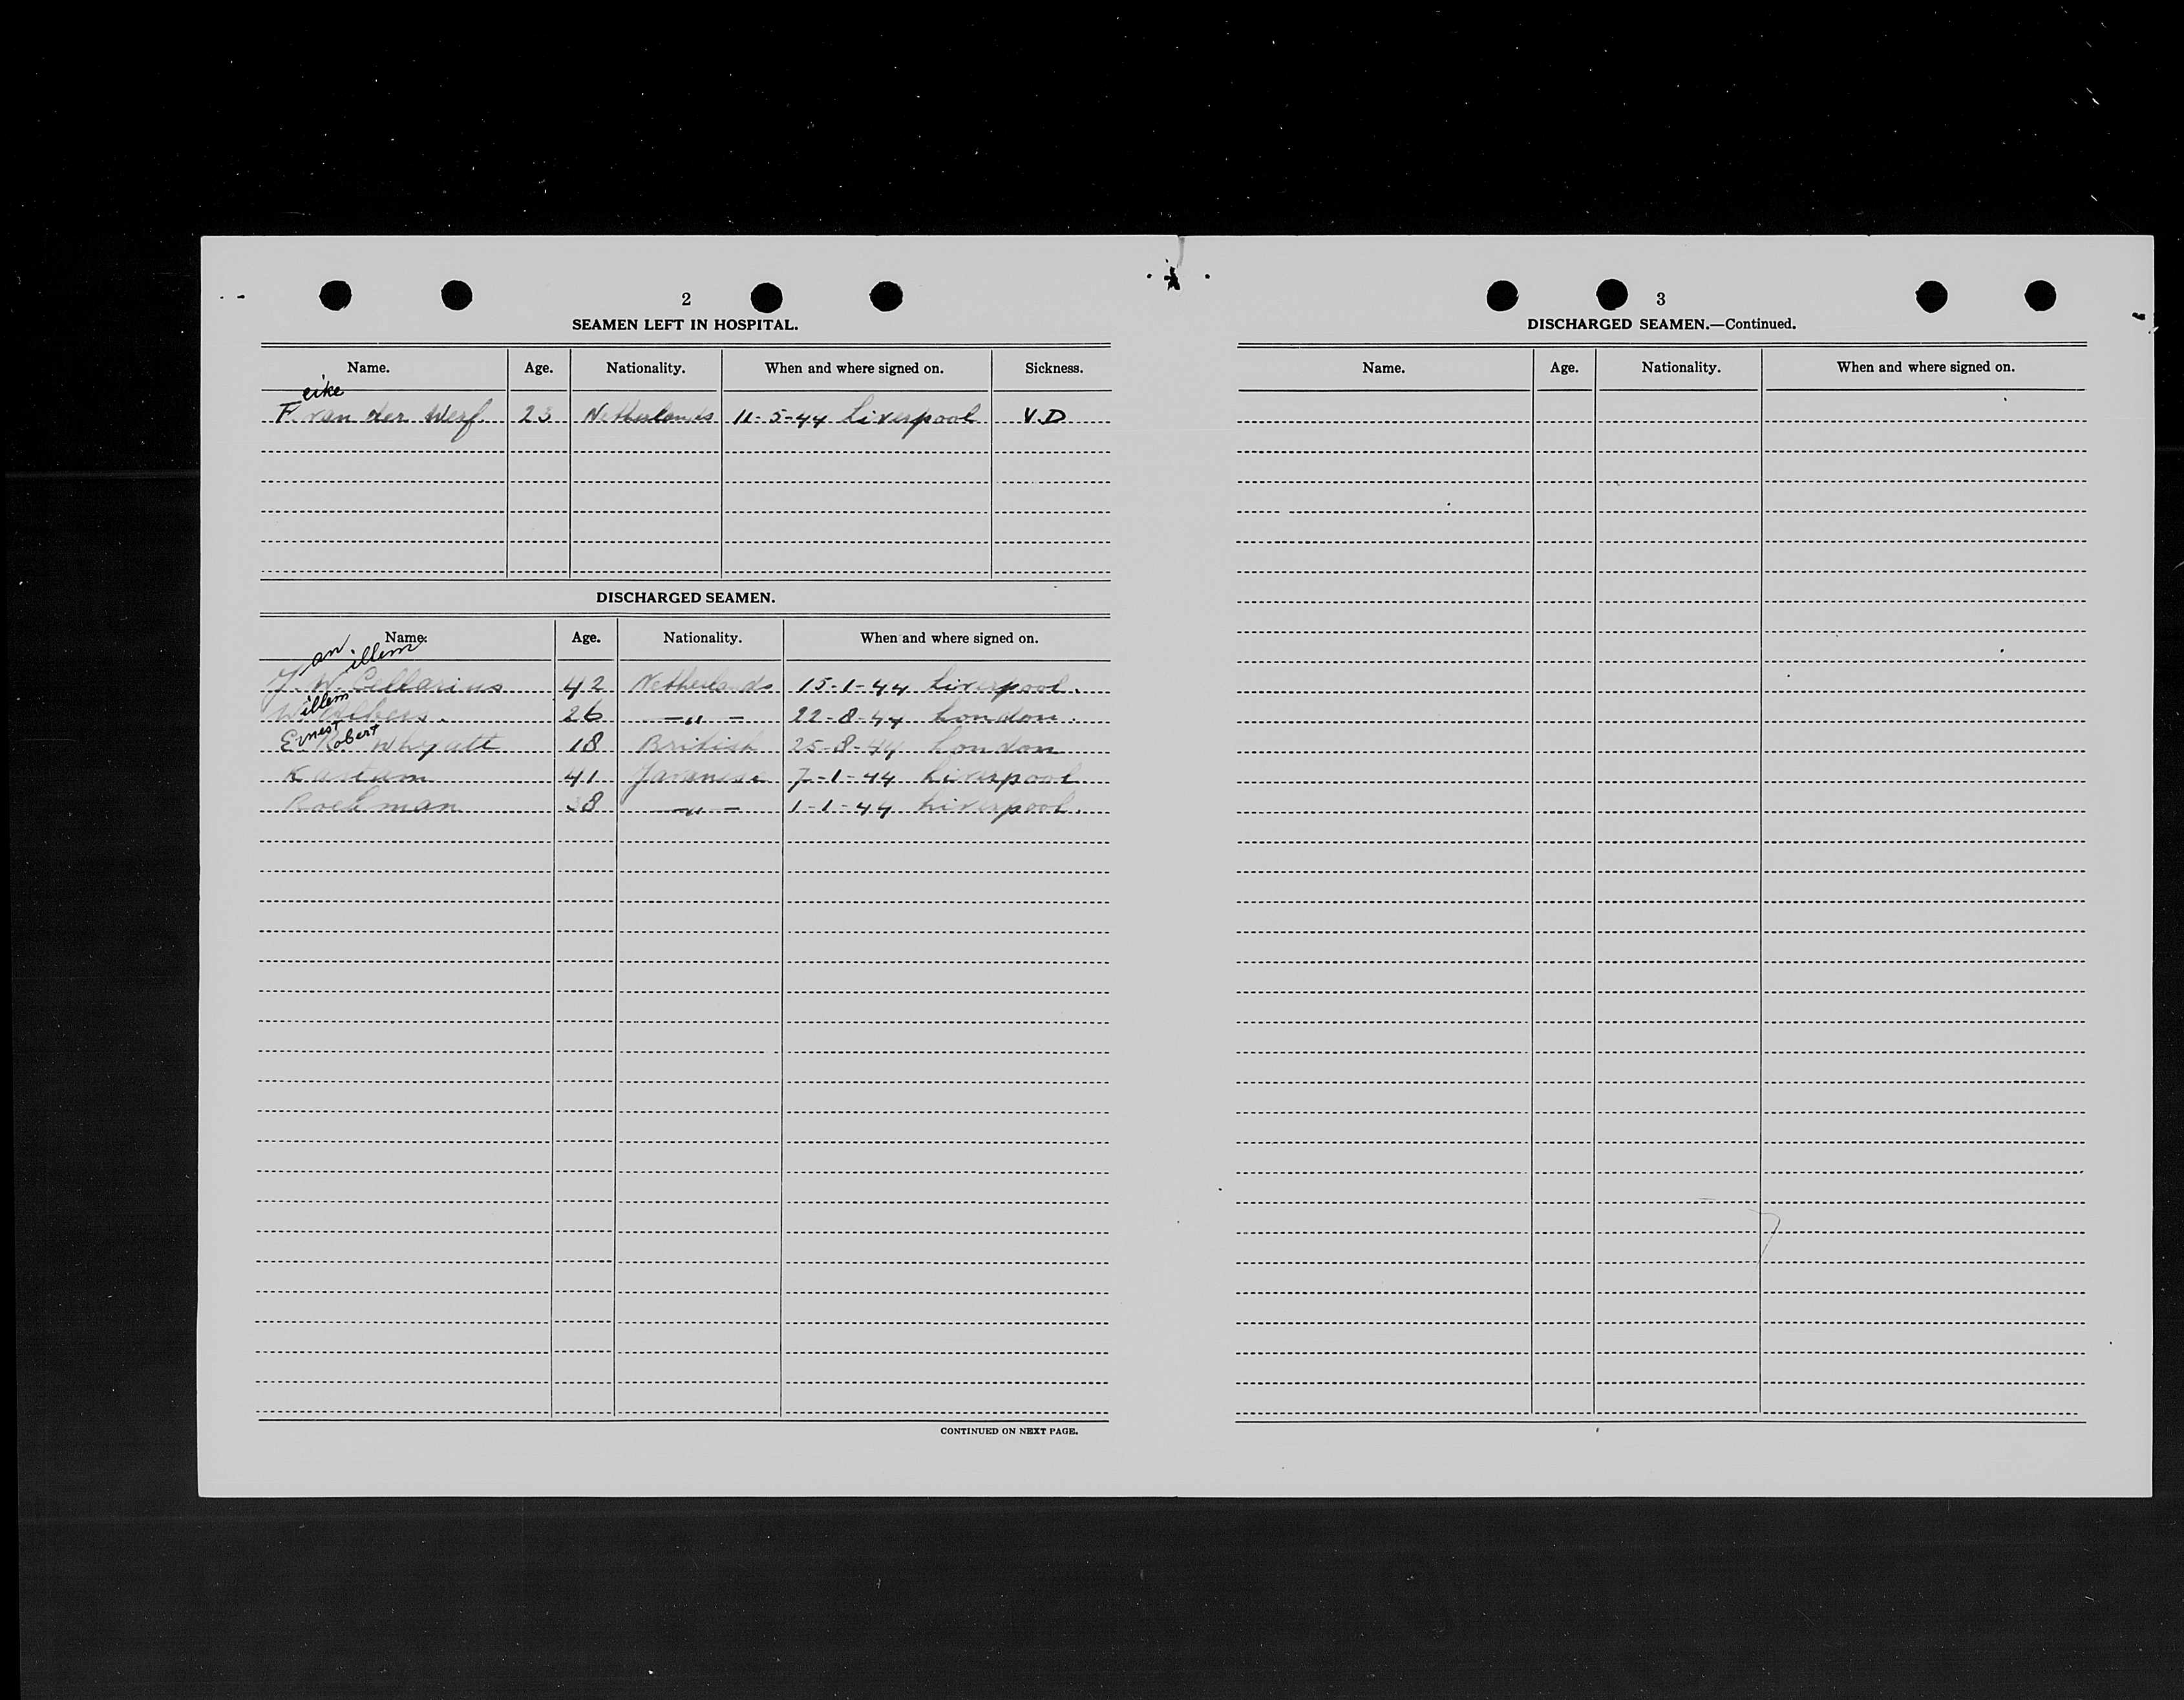 2
SEAMEN LEFT IN HOSPITAL.
Name. Age. Nationality. When and where signed on. Sickness.
eike
F. van der Werf. 23 Netherlands 11-5-44 Liverpool V.D
DISCHARGED SEAMEN.
Name. Age. Nationality. When and where signed on.
an illem
J. W. Cellarius 42 Netherlands 15-1-44 Liverpool.
illem
W. Albers. 26 —„— 22-8-44 London.
Ernest Robert
E. R. Whyatt 18 British 25-8-44 London
Kastam 41 Javanese 7-1-44 Liverpool
Roekman 38 —„— 1-1-44 Liverpool.
CONTINUED ON NEXT PAGE.
3
DISCHARGED SEAMEN.—Continued.
Name. Age. Nationality. When and where signed on.